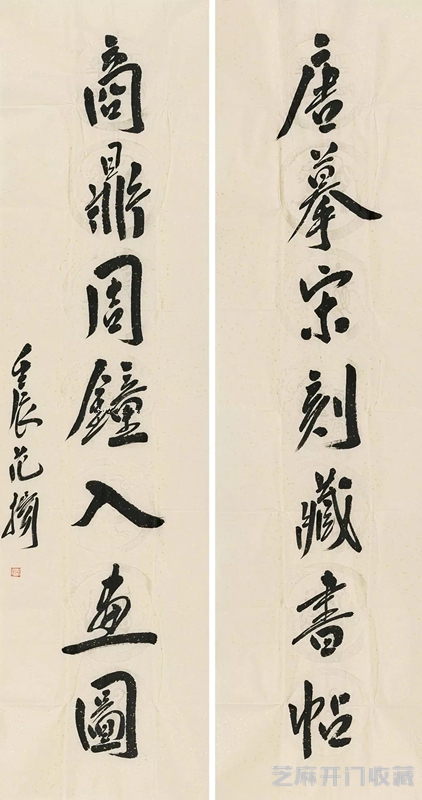 唐摹宋刻藏書帖
商鼎周鐘入畫圖
壬辰范擣
芝麻开门收藏